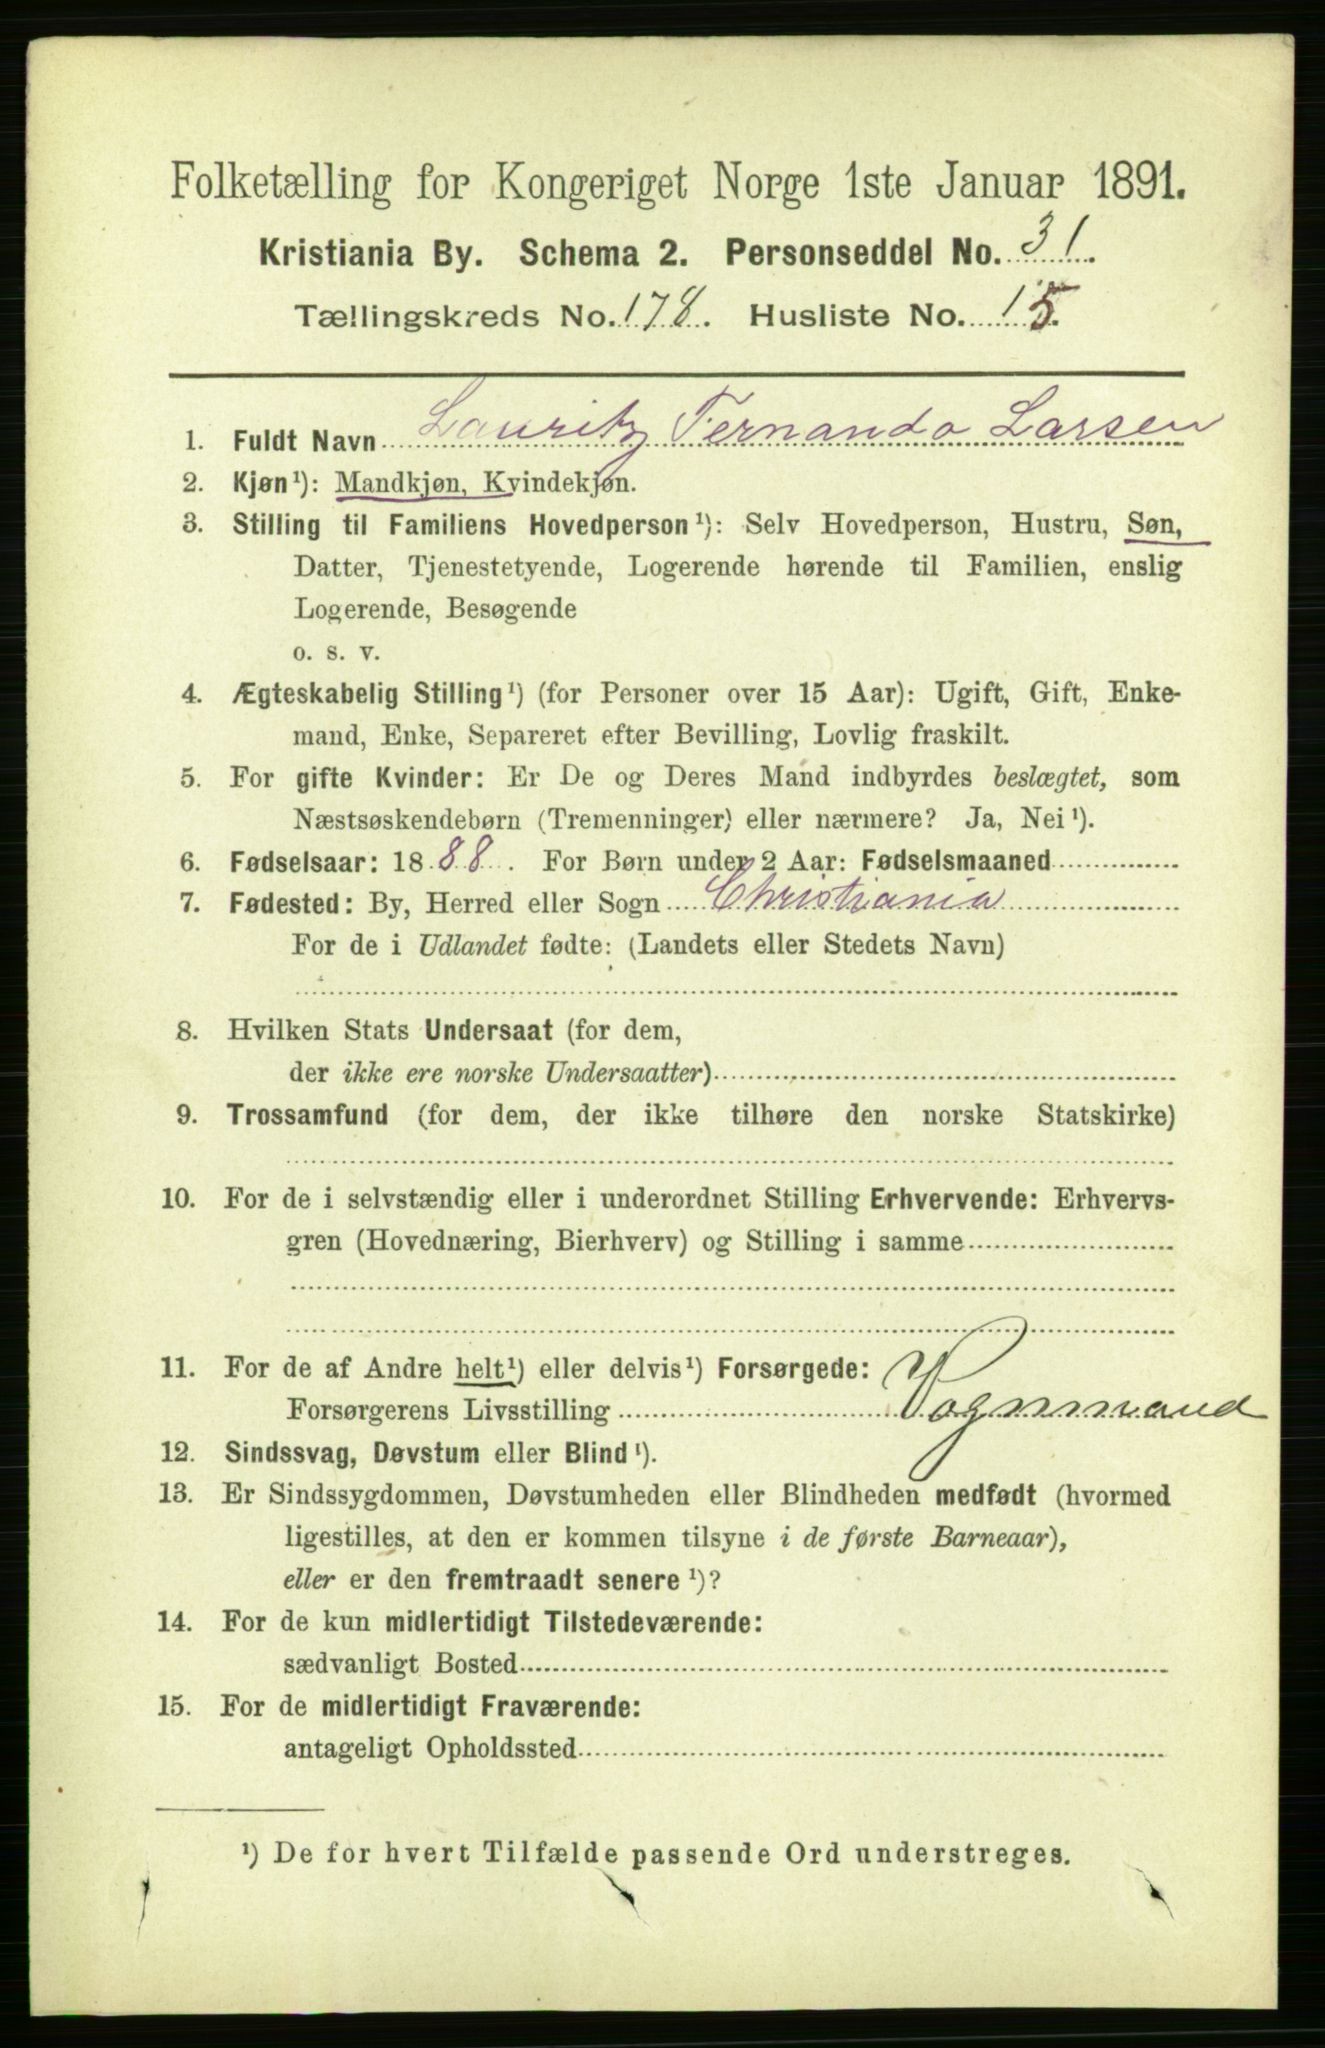 Folketælling for Kongeriget Norge 1ste Januar 1891.
Kristiania By. Schema 2. Personseddel No. 31.
Tællingskreds No. 178. Husliste No. 15.
1. Fuldt Navn Lauritz Fernando Larsen
2. Kjøn¹): Mandkjøn, Kvindekjøn.
3. Stilling til Familiens Hovedperson¹): Selv Hovedperson, Hustru, Søn,
Datter, Tjenestetyende, Logerende hørende til Familien, enslig
Logerende, Besøgende
o. s. v.
4. Ægteskabelig Stilling¹) (for Personer over 15 Aar): Ugift, Gift, Enke-
mand, Enke, Separeret efter Bevilling, Lovlig fraskilt.
5. For gifte Kvinder: Er De og Deres Mand indbyrdes beslægtet, som
Næstsøskendebørn (Tremenninger) eller nærmere? Ja, Nei¹).
6. Fødselsaar: 1888. For Børn under 2 Aar: Fødselsmaaned
7. Fødested: By, Herred eller Sogn Christiania
For de i Udlandet fødte: (Landets eller Stedets Navn)
8. Hvilken Stats Undersaat (for dem,
der ikke ere norske Undersaatter)
9. Trossamfund (for dem, der ikke tilhøre den norske Statskirke)
10. For de i selvstændig eller i underordnet Stilling Erhvervende: Erhvervs-
gren (Hovednæring, Bierhverv) og Stilling i samme
11. For de af Andre helt¹) eller delvis¹) Forsørgede:
Forsørgerens Livsstilling Vognmand
12. Sindssvag, Døvstum eller Blind¹).
13. Er Sindssygdommen, Døvstumheden eller Blindheden medfødt (hvormed
ligestilles, at den er kommen tilsyne i de første Barneaar),
eller er den fremtraadt senere¹)?
14. For de kun midlertidigt Tilstedeværende:
sædvanligt Bosted
15. For de midlertidigt Fraværende:
antageligt Opholdssted
¹) De for hvert Tilfælde passende Ord understreges.